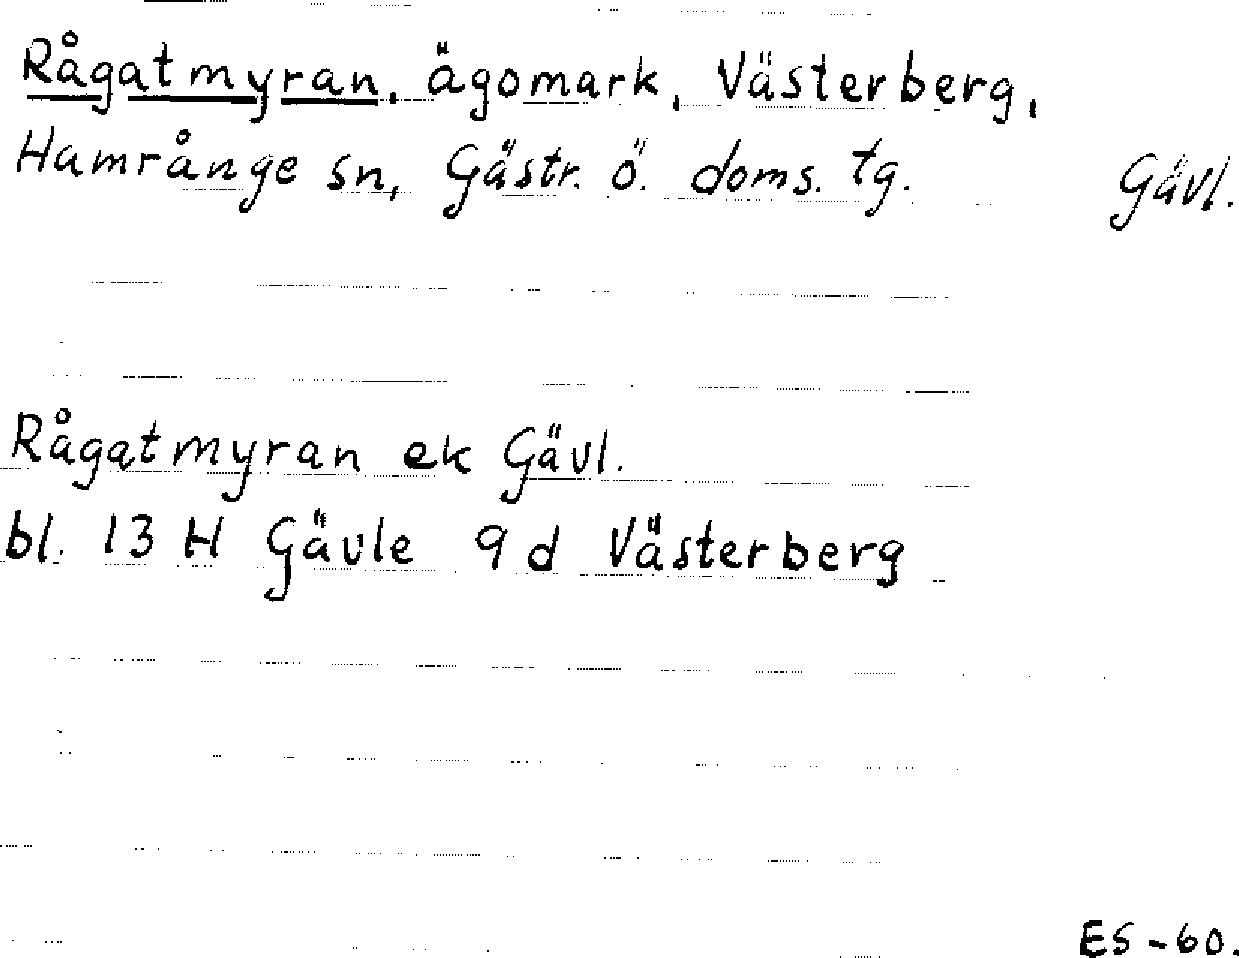 Rågatmyran, ägomark, Västerberg,
Hamrånge sn, Gästr. ö. doms. tg. Gävl.
Rågatmyran ek Gävl.
bl. 13 H Gävle 9 d Västerberg
ES-60.